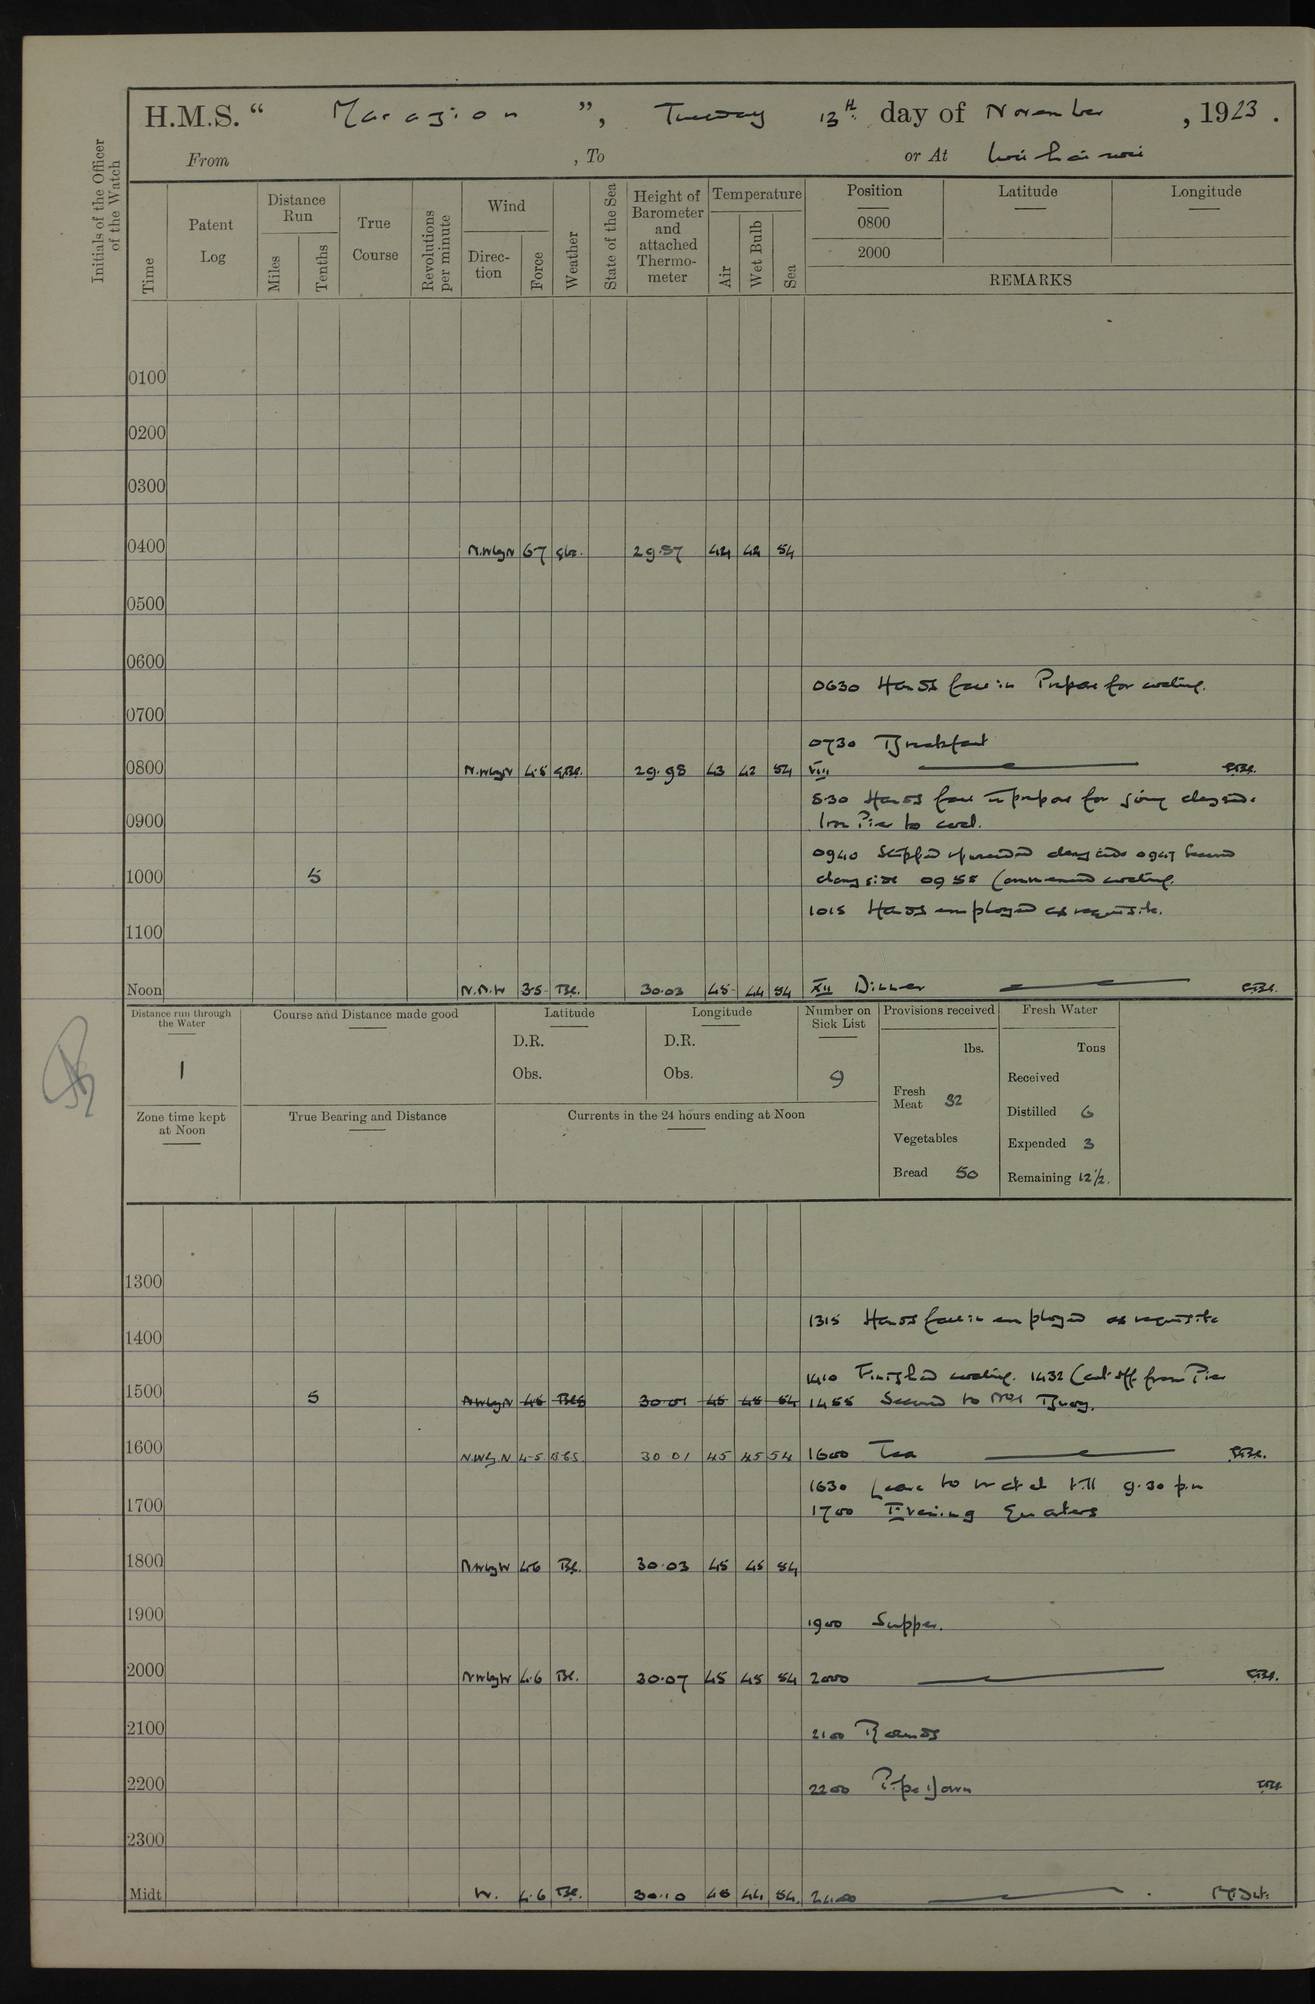 H.M.S. “ Marazion ”, Tuesday 13th day of November , 1923 .
From , To or At Wei hai wei
Initials of the Officer of the Watch
Time
Patent Log
Distance Run
Miles
Tenths
True Course
Revolutions per minute
Wind
Direc-tion
Force
Weather
State of the Sea
Height of Barometer and attached Thermo-meter
Temperature
Air
Wet Bulb
Sea
Position
0800
2000
Latitude
Longitude
REMARKS
0100
0200
0300
0400 N.WbyN 67 29.87 42 54
0500
0600
0630 Hands fall in Prepare for coaling.
0700
0730 Breakfast
0800 N.WbyN 4.5 29.98 43 42 54 VIII
8.30 Hands fall in prepare for going alongside
0900 Iron Pier to coal.
0940 Slipped & proceeded alongside 0947 Secured
1000 5 alongside 0955 Commenced coaling.
1015 Hands employed as requisite.
1100
Noon N.N.W 3.5 Bc. 30.03 45 44 54 XII Dinner
Distance run through the Water
1
Course and Distance made good
Latitude
D.R.
Obs.
Longitude
D.R.
Obs.
Number on Sick List
9
Provisions received
lbs.
Fresh Meat 32
Vegetables
Bread 50
Fresh Water
Tons
Received
Distilled 6
Expended 3
Remaining 12½.
Zone time kept at Noon
True Bearing and Distance
Currents in the 24 hours ending at Noon
1300
1315 Hands fall in employed as requisite
1400
1410 Finished coaling. 1432 Cast off from Pier
1500 5 NWbyN 45 Bcs 30.01 45 45 54 1455 Secured to No 1 Buoy.
1600 N.Wby.N 4-5 BCS 30 01 45 45 54 1600 Tea
1630 Leave to watch till 9.30 p.m
1700 1700 Evening Quarters
1800 NWbyW 4.6 Bc. 30.03 45 45 54
1900 1900 Supper.
2000 NWbyW 4.6 Bc. 30.07 45 45 54 2000
2100 2100 Rounds
2200 2200 Pipe Down
2300
Midt W. 4.6 Bc. 30.10 45 44 54 2400